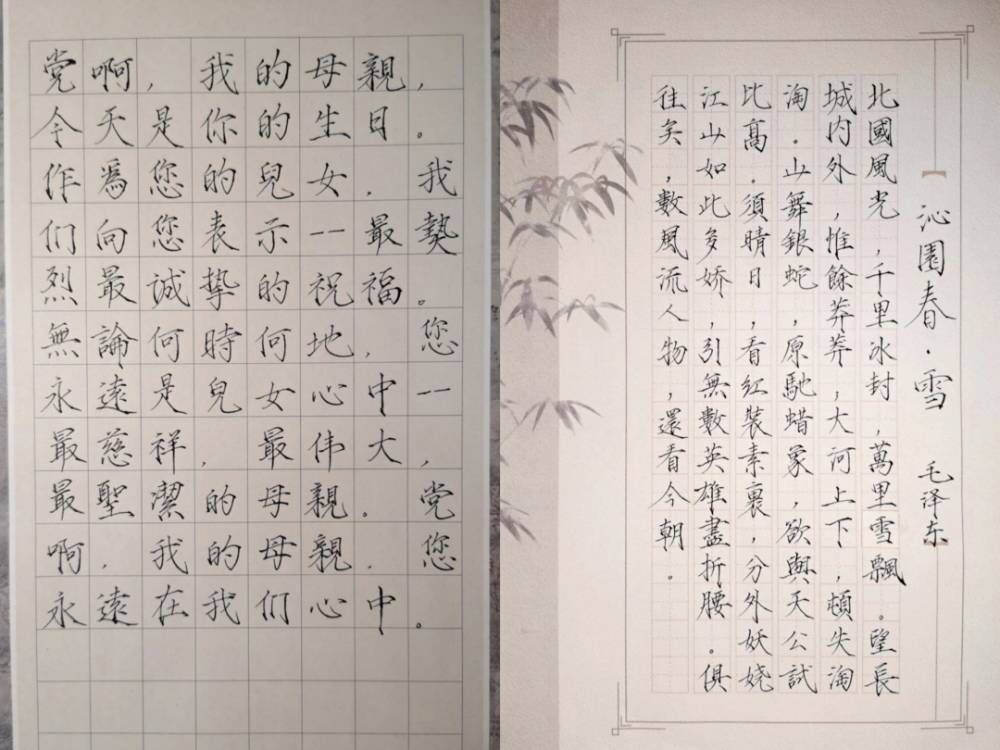 党啊,我的母親,
今天是你的生日。
作爲您的兒女,我
们向您表示——最熱
烈最誠挚的祝福。
無論何時何地,您
永遠是兒女心中——
最慈祥,最伟大,
最聖潔的母親。党
啊,我的母親.您
永遠在我们心中。
沁園春·雪 毛泽东
北國風光,千里冰封,萬里雪飄。望長
城内外,惟餘莽莽,大河上下,頓失淘
淘.山舞銀蛇,原馳蜡象,欲與天公試
比高.須晴日,看紅装素裹,分外妖娆
江山如此多娇,引無數英雄盡折腰。俱
往矣,數風流人物,還看今朝。